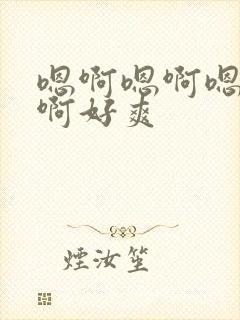 嗯啊嗯啊嗯
啊好爽
煙汝笙